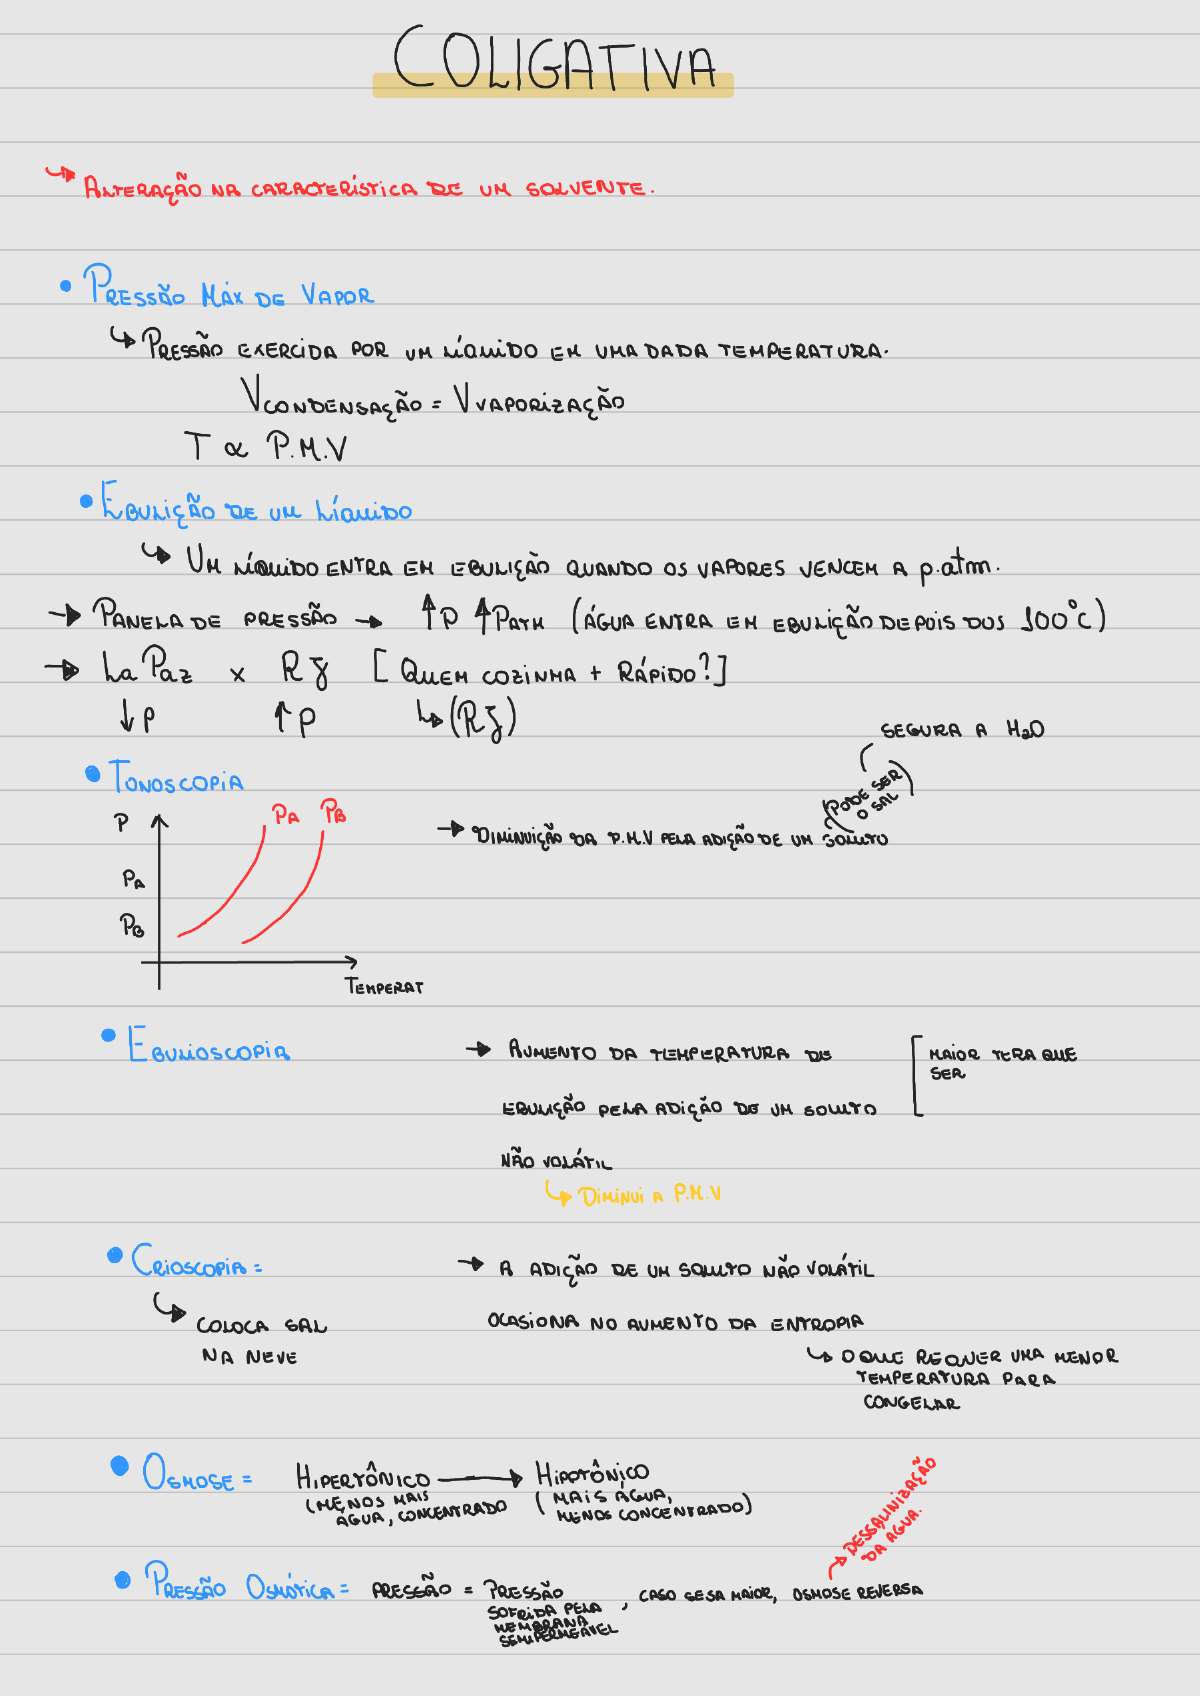 COLIGATIVA
ALTERAÇÃO NA CARACTERÍSTICA DE UM SOLVENTE.
• PRESSÃO MÁX DE VAPOR
PRESSÃO EXERCIDA POR UM LÍQUIDO EM UMA DADA TEMPERATURA.
VCONDENSAÇÃO = VVAPORIZAÇÃO
T ∝ P.M.V
• EBULIÇÃO DE UM LÍQUIDO
UM LÍQUIDO ENTRA EM EBULIÇÃO QUANDO OS VAPORES VENCEM A p.atm.
→ PANELA DE PRESSÃO → ↑P ↑PATM (ÁGUA ENTRA EM EBULIÇÃO DEPOIS DOS 100°C)
→ LA PAZ x RJ [QUEM COZINHA + RÁPIDO?]
↓P ↑P ↳(RJ)
SEGURA A H2O
(PODE SER
O SAL)
• TONOSCOPIA
P PA PB
→ DIMINUIÇÃO DA P.M.V PELA ADIÇÃO DE UM SOLUTO
PA
PB
TEMPERAT
• EBULIOSCOPIA → AUMENTO DA TEMPERATURA DE [MAIOR TERA QUE
SER
EBULIÇÃO PELA ADIÇÃO DE UM SOLUTO
NÃO VOLÁTIL
↳ DIMINUI A P.M.V
• CRIOSCOPIA = → A ADIÇÃO DE UM SOLUTO NÃO VOLÁTIL
↳ COLOCA SAL OCASIONA NO AUMENTO DA ENTROPIA
NA NEVE ↳ O QUE REQUER UMA MENOR
TEMPERATURA PARA
CONGELAR
• OSMOSE = HIPERTÔNICO → HIPOTÔNICO
(MENOS MAIS (MAIS ÁGUA,
ÁGUA, CONCENTRADO MENOS CONCENTRADO)
→ DESSALINIZAÇÃO
DA AGUA.
• PRESSÃO OSMÓTICA = APRESSÃO = PRESSÃO , CASO SESA MAIOR, OSMOSE REVERSA
SOFRIDA PELA
MEMBRANA
SEMIPERMEÁVEL